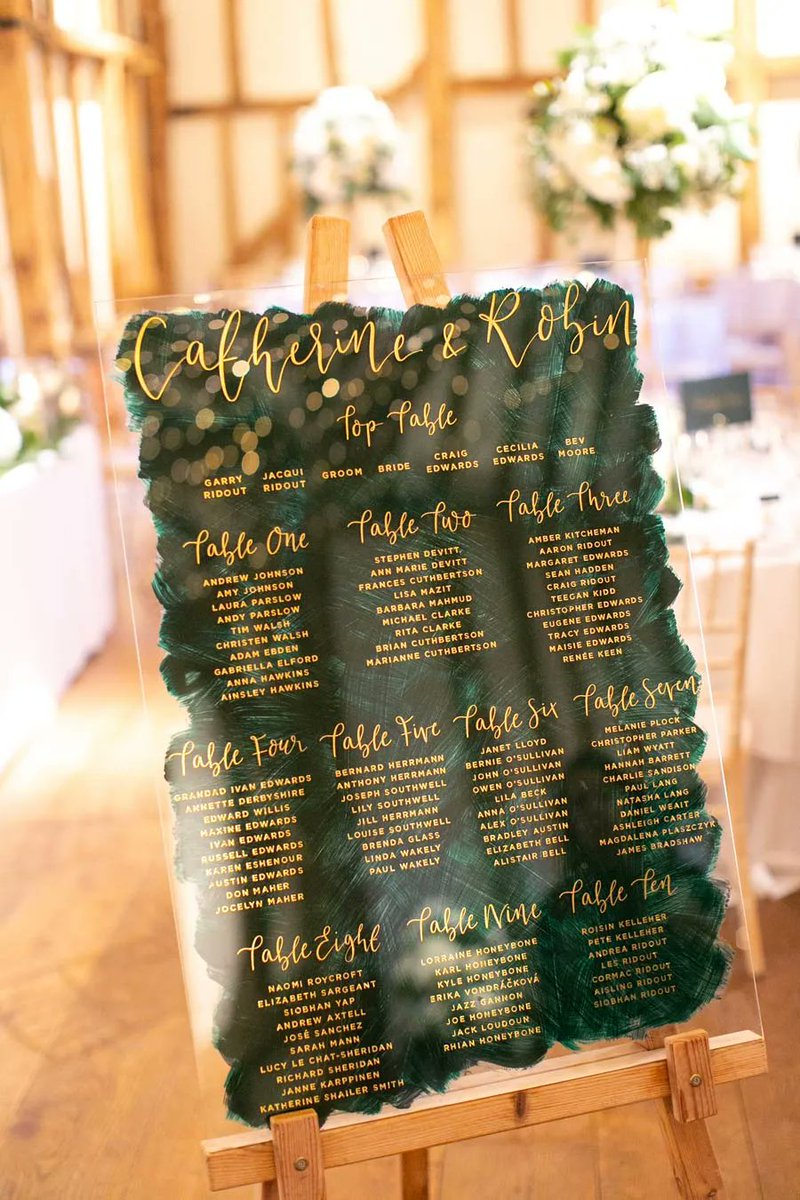 Catherine & Robin
Top Table
GARRY RIDOUT
JACQUI RIDOUT
GROOM
BRIDE
CRAIG EDWARDS
CECILIA EDWARDS
BEV MOORE
Table One
ANDREW JOHNSON
AMY JOHNSON
LAURA PARSLOW
ANDY PARSLOW
TIM WALSH
CHRISTEN WALSH
ADAM EBDEN
GABRIELLA ELFORD
ANNA HAWKINS
AINSLEY HAWKINS
Table Two
STEPHEN DEVITT
ANN MARIE DEVITT
FRANCES CUTHBERTSON
LISA MAZIT
BARBARA MAHMUD
MICHAEL CLARKE
RITA CLARKE
BRIAN CUTHBERTSON
MARIANNE CUTHBERTSON
Table Three
AMBER KITCHEMAN
AARON RIDOUT
MARGARET EDWARDS
SEAN HADDEN
CRAIG RIDOUT
TEEGAN KIDD
CHRISTOPHER EDWARDS
EUGENE EDWARDS
TRACY EDWARDS
MAISIE EDWARDS
RENÉE KEEN
Table Four
GRANDAD IVAN EDWARDS
ANNETTE DERBYSHIRE
EDWARD WILLIS
MAXINE EDWARDS
IVAN EDWARDS
RUSSELL EDWARDS
KAREN ESHENOUR
AUSTIN EDWARDS
DON MAHER
JOCELYN MAHER
Table Five
BERNARD HERRMANN
ANTHONY HERRMANN
JOSEPH SOUTHWELL
LILY SOUTHWELL
JILL HERRMANN
LOUISE SOUTHWELL
BRENDA GLASS
LINDA WAKELY
PAUL WAKELY
Table Six
JANET LLOYD
BERNIE O'SULLIVAN
JOHN O'SULLIVAN
OWEN O'SULLIVAN
LILA BECK
ANNA O'SULLIVAN
ALEX O'SULLIVAN
BRADLEY AUSTIN
ELIZABETH BELL
ALISTAIR BELL
Table Seven
MELANIE PLOCK
CHRISTOPHER PARKER
LIAM WYATT
HANNAH BARRETT
CHARLIE SANDISON
PAUL LANG
NATASHA LANG
DANIEL WEAIT
ASHLEIGH CARTER
MAGDALENA PLASZCZYK
JAMES BRADSHAW
Table Eight
NAOMI ROYCROFT
ELIZABETH SARGEANT
SIOBHAN YAP
ANDREW AXTELL
JOSÉ SANCHEZ
SARAH MANN
LUCY LE CHAT-SHERIDAN
RICHARD SHERIDAN
JANNE KARPPINEN
KATHERINE SHAILER SMITH
Table Nine
LORRAINE HONEYBONE
KARL HONEYBONE
KYLE HONEYBONE
ERIKA VONDRÁČKOVÁ
JAZZ GAHNON
JOE HONEYBONE
JACK LOUDOUN
RHIAN HONEYBONE
Table Ten
ROISIN KELLEHER
PETE KELLEHER
ANDREA RIDOUT
LES RIDOUT
CORMAC RIDOUT
AISLING RIDOUT
SIOBHAN RIDOUT